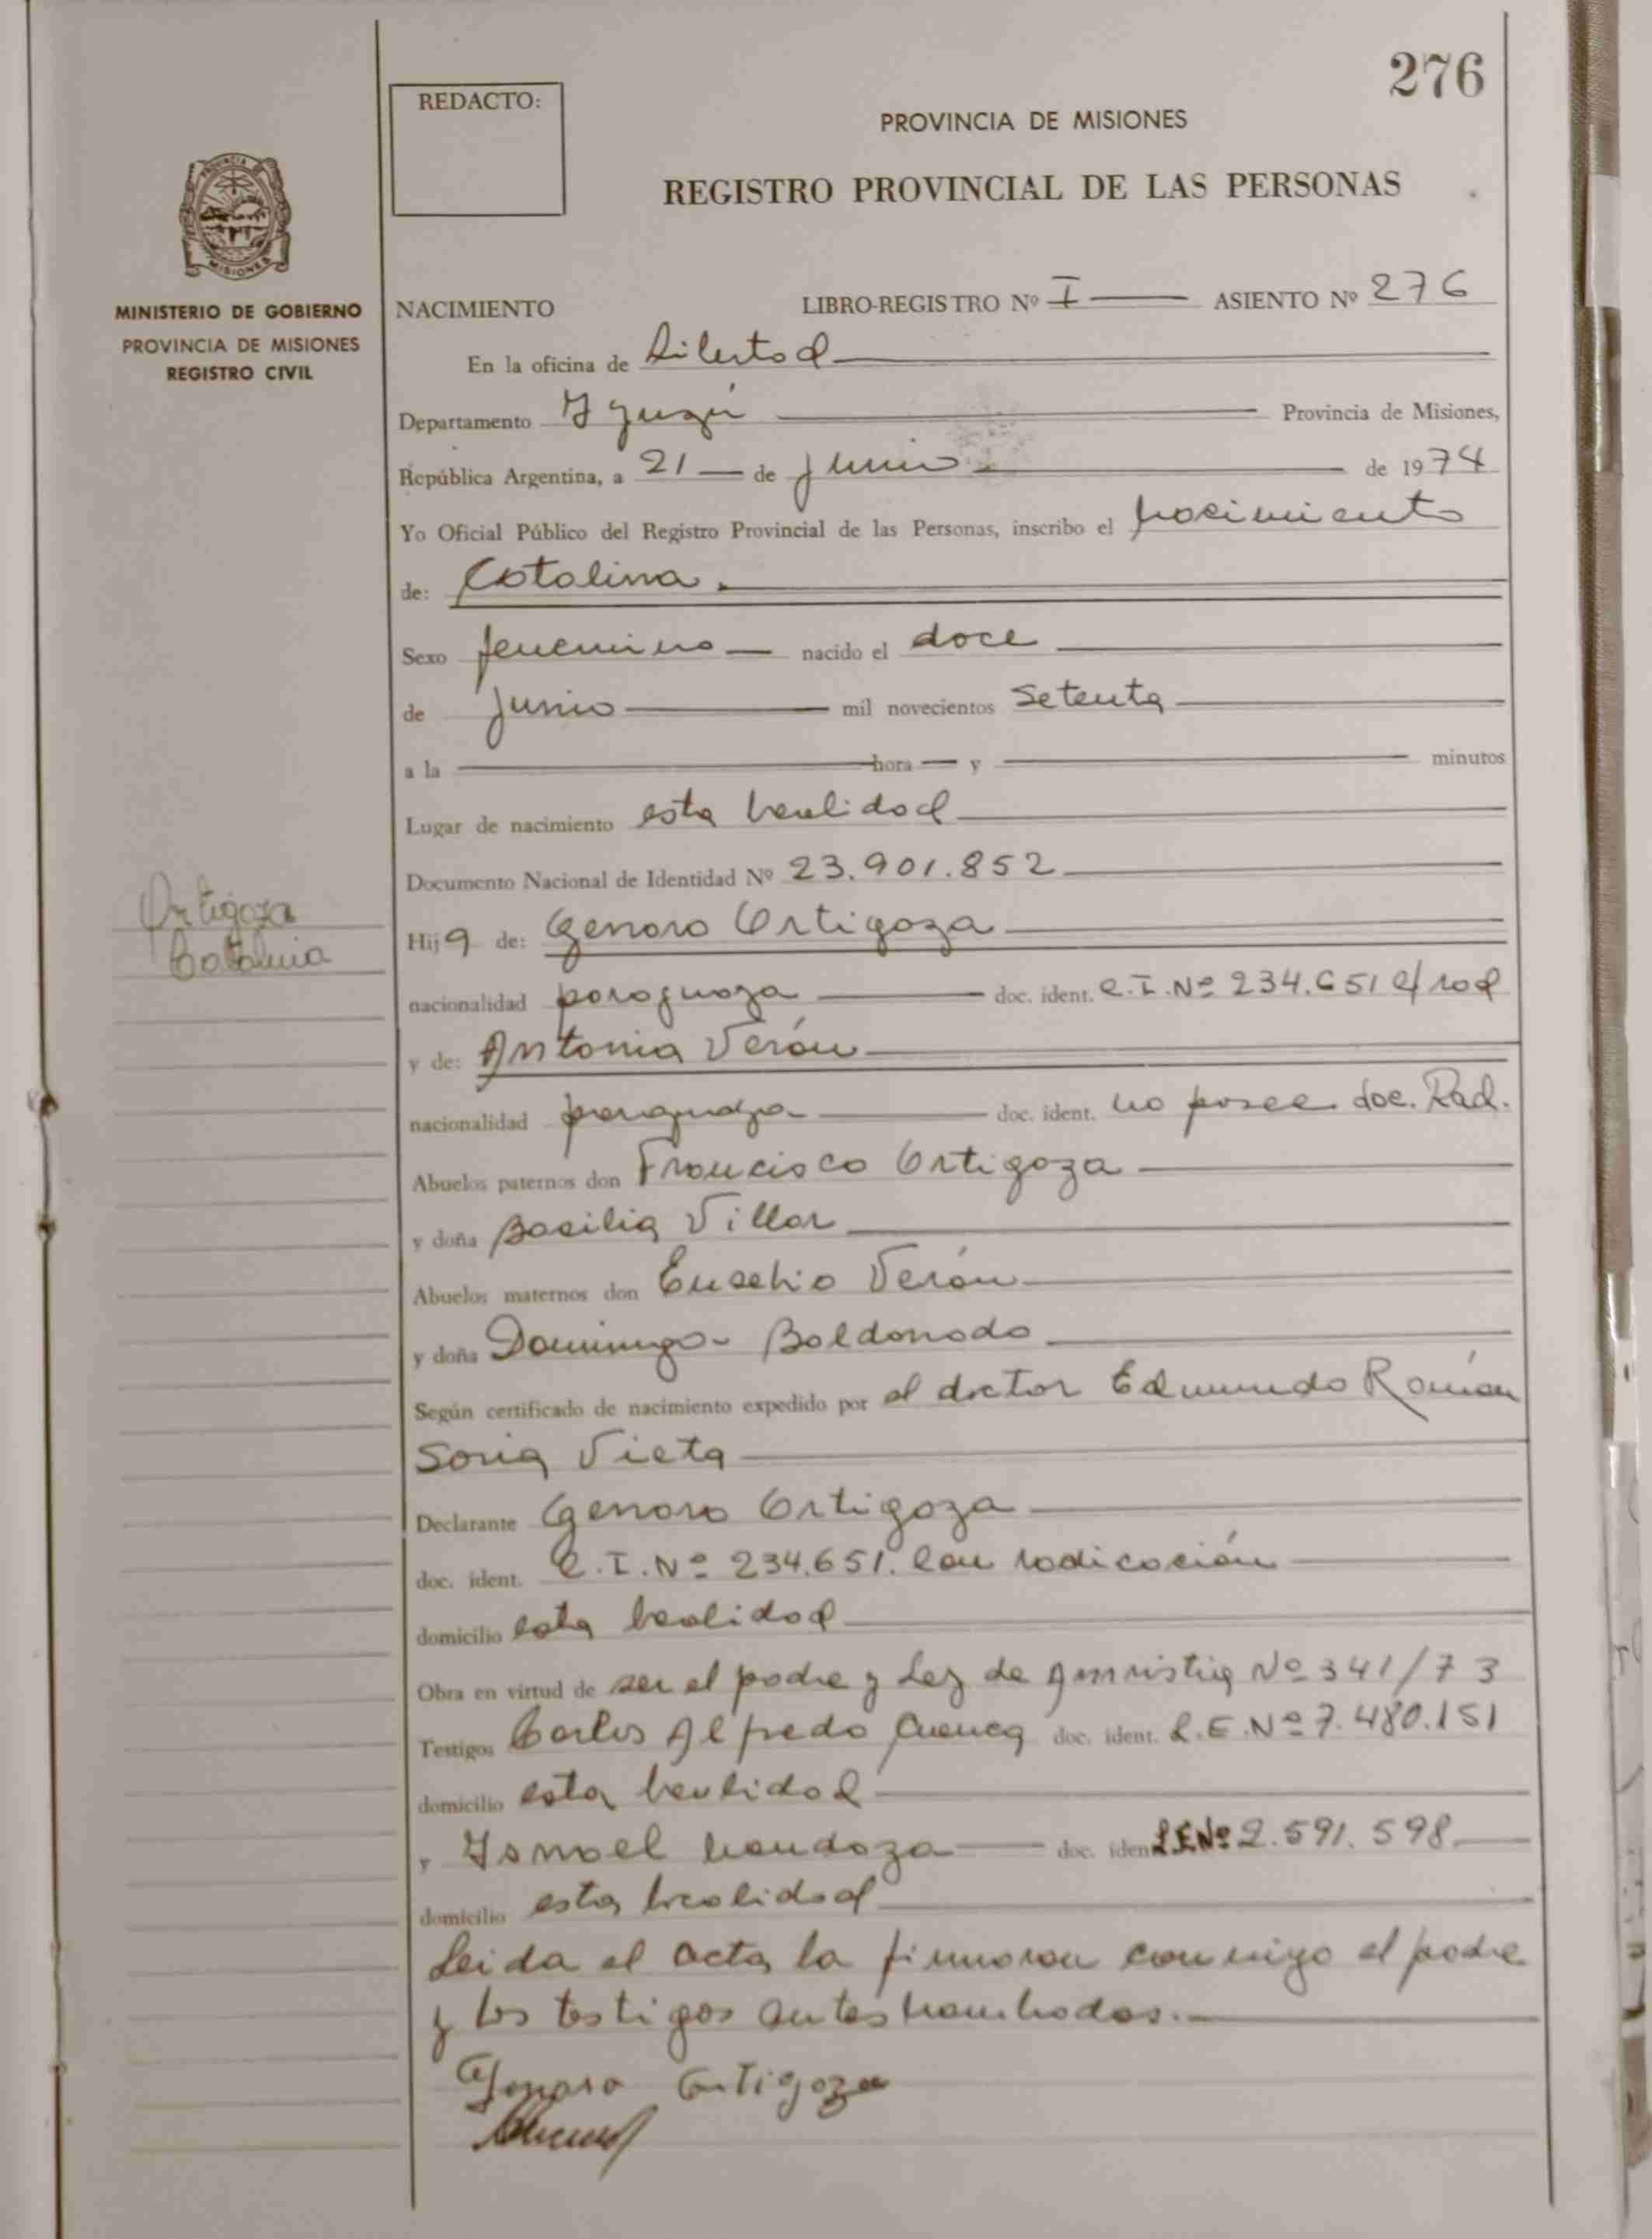 276
REDACTO:
PROVINCIA DE MISIONES
REGISTRO PROVINCIAL DE LAS PERSONAS
PROVINCIA
MISIONES
MINISTERIO DE GOBIERNO
PROVINCIA DE MISIONES
REGISTRO CIVIL
NACIMIENTO LIBRO-REGISTRO Nº I ASIENTO Nº 276
En la oficina de Libertad
Departamento Iguazú Provincia de Misiones,
República Argentina, a 21 de junio de 1974
Yo Oficial Público del Registro Provincial de las Personas, inscribo el nacimiento
de: Catalina.
Sexo femenino nacido el doce
de junio mil novecientos setenta
a la hora y minutos
Lugar de nacimiento esta localidad
Documento Nacional de Identidad Nº 23.901.852
Ortigoza
Catalina
Hija de: Genaro Ortigoza
nacionalidad paraguaya doc. ident. C.I.Nº 234.651 c/rad
y de: Antonia Verón
nacionalidad paraguaya doc. ident. no posee doc. Rad.
Abuelos paternos don Francisco Ortigoza
y doña Basilia Villar
Abuelos maternos don Eusebio Verón
y doña Dominga Baldonado
Según certificado de nacimiento expedido por el doctor Edmundo Román
Soria Vieta
Declarante Genaro Ortigoza
doc. ident. C.I.Nº 234.651. con radicación
domicilio esta localidad
Obra en virtud de ser el padre y Ley de Amnistia Nº 341/73
Testigos Carlos Alfredo Cuenca doc. ident. L.E.Nº 7.480.151
domicilio esta localidad
y Ismael Mendoza doc. iden L.E.Nº 2.591.598.
domicilio esta localidad
Leida el acta, la firmaron conmigo el padre
y los testigos antes nombrados.
Genaro Ortigoza